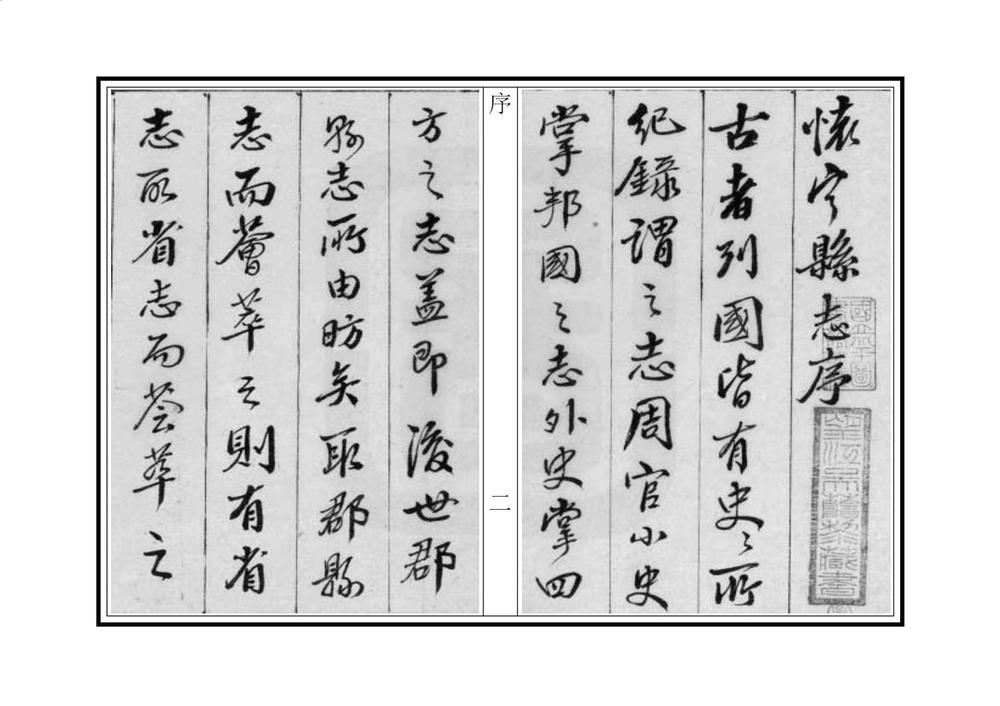 懷寧縣志序
古者列國皆有史〻所
紀錄謂之志周官小史
掌邦國之志外史掌四
序
二
方之志蓋即後世郡
縣志所由昉矣取郡縣
志而薈萃之則有省
志取省志而薈萃之